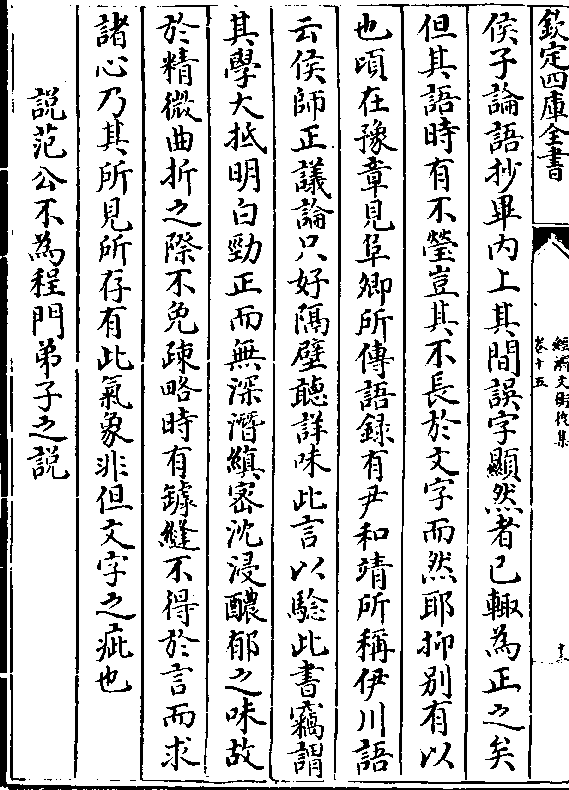 欽定四庫全書
經濟文衡後集
卷十五
侯子論語抄畢内上其間誤字顯然者已輙為正之矣
但其語時有不瑩豈其不長於文字而然耶抑别有以
也頃在豫章見阜卿所傳語錄有尹和靖所稱伊川語
云侯師正議論只好隔壁聽詳味此言以驗此書竊謂
其學大抵明白勁正而無深潛縝密沈浸醲郁之味故
於精微曲折之際不免疎略時有罅縫不得於言而求
諸心乃其所見所存有此氣象非但文字之疵也
説范公不為程門弟子之説